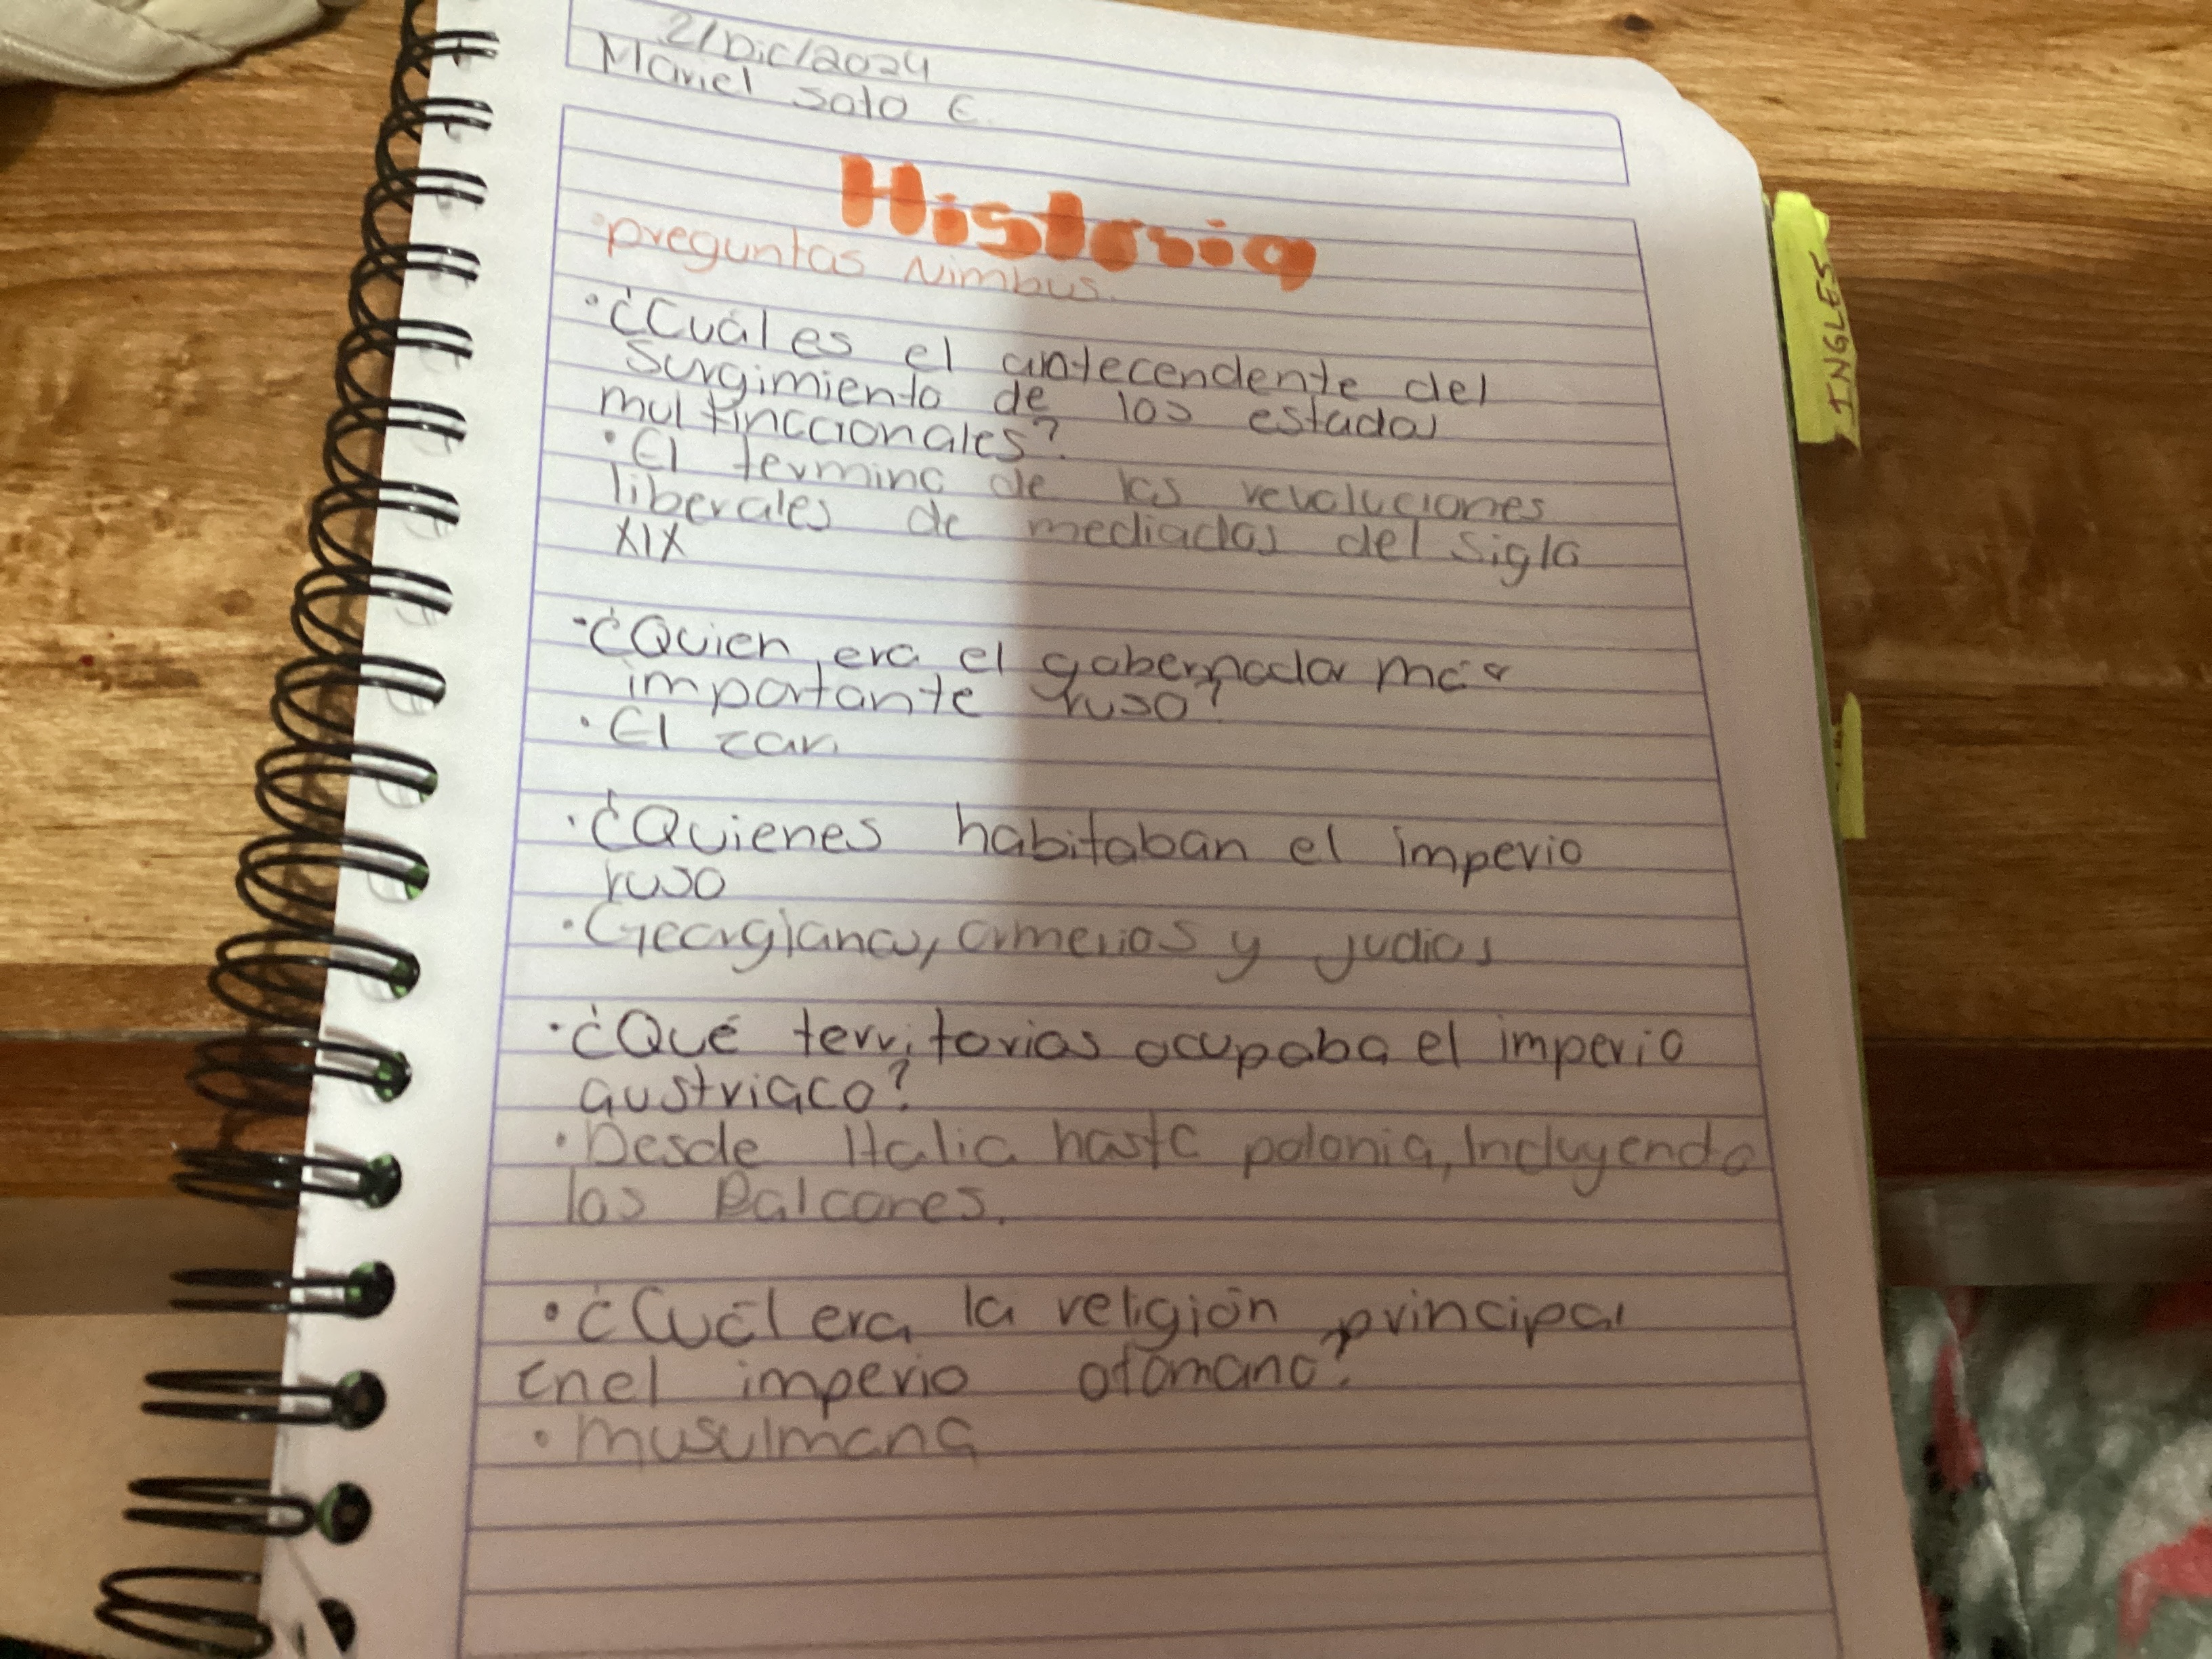 2/Dic/2024
Mariel Soto E.
Historia
•preguntas Nimbus.
•¿Cuál es el antecendente del
surgimiento de los estados
multinccionales?
•El termino de las revoluciones
liberales de mediados del siglo
XIX
•¿Quien era el gobernador más
importante ruso?
•El zar.
•¿Quienes habitaban el imperio
ruso
•Georgianos, armenios y judios
•¿Qué territorios ocupaba el imperio
austriaco?
•Desde Italia hasta polonia, Incluyendo
los Balcanes.
•¿Cuál era la religión principal
enel imperio otomano?
•musulmana
INGLES